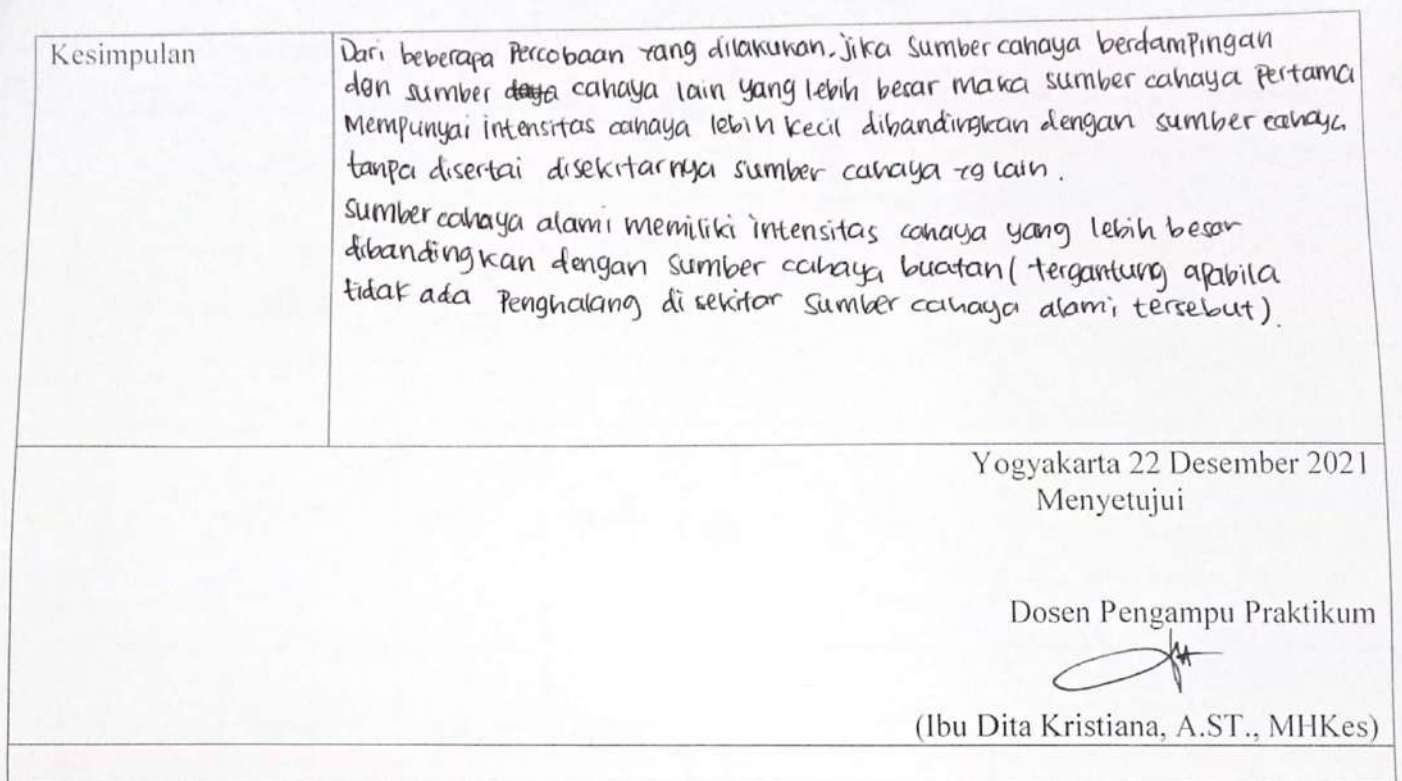 Kesimpulan
Dari beberapa Percobaan yang dilakukan. jika sumber cahaya berdampingan
dan sumber daya cahaya lain yang lebih besar maka sumber cahaya Pertama
Mempunyai intensitas cahaya lebih kecil dibandingkan dengan sumber cahaya
tanpa disertai disekitarnya sumber cahaya yg lain.
Sumber cahaya alami memiliki intensitas cahaya yang lebih besar
dibandingkan dengan sumber cahaya buatan (tergantung apabila
tidak ada Penghalang di sekitar sumber cahaya alami tersebut).
Yogyakarta 22 Desember 2021
Menyetujui
Dosen Pengampu Praktikum
(Ibu Dita Kristiana, A.ST., MHKes)